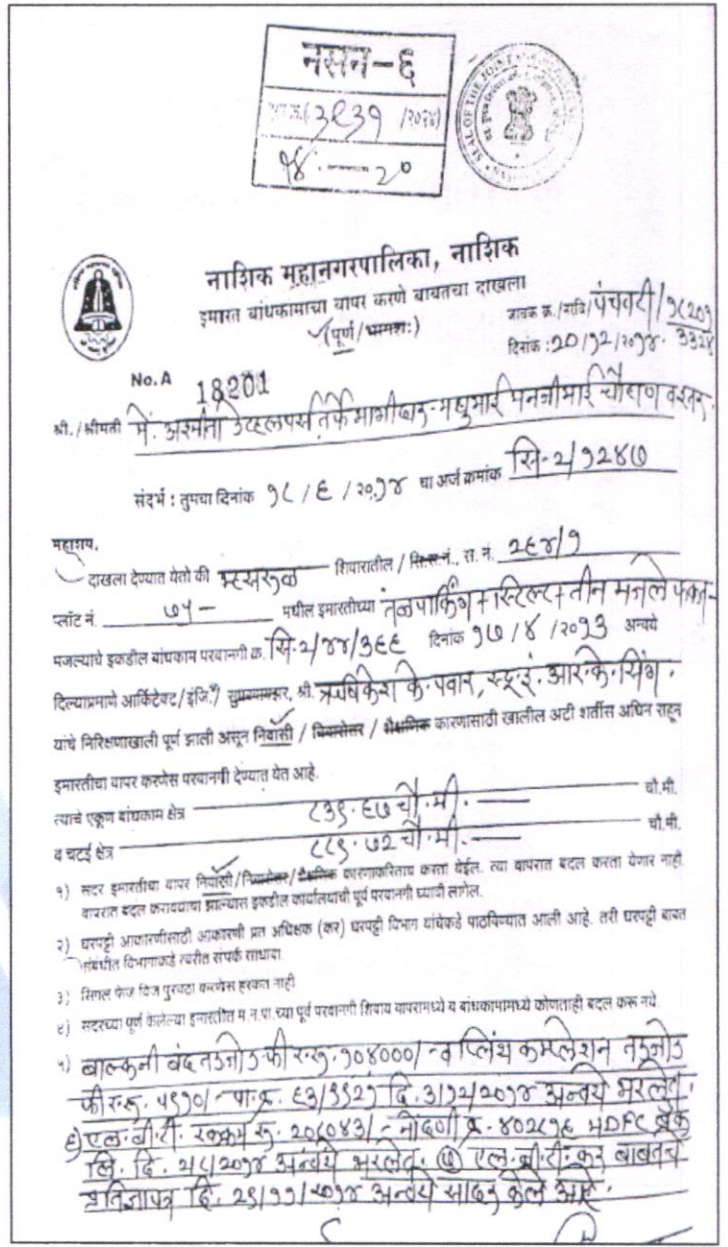 नसन-६
३९३१ /२०२४)
१४ — २०
SEAL OF THE JOINT
नाशिक महानगरपालिका, नाशिक
इमारत बांधकामाचा वापर करणे बाबतचा दाखला
(पूर्ण/भागशः)
जावक क्र./नावि/पंचवटी/१८२०१
३३२४
दिनांक :२०/१२/२०१४.
No. A 18201
श्री./श्रीमती मे. अस्मीता डेव्हलपर्स तर्फे भागीदार-मधुभाई मनजीभाई चौहाण व इतर.
संदर्भ : तुमचा दिनांक १८/९/२०१४ चा अर्ज क्रमांक सि-२/१२४७
महाशय,
दाखला देण्यात येतो की म्हसरूळ शिवारातील / सि.स.नं., स. नं. २६४/१
प्लॉट नं. ७५- मधील इमारतीच्या तळपार्किंग+स्टिल्ट+तीन मजले फक्त-
मजल्याचे इकडील बांधकाम परवानगी क्र. सि-२/४४/३६६ दिनांक १७/४/२०१३ अन्वये
दिल्याप्रमाणे आर्किटेक्ट/इंजि./ सुपरवायझर, श्री. ऋषिकेश के. पवार, स्ट्र.इं. आर.के.सिंग.
यांचे निरिक्षणाखाली पूर्ण झाली असून निवासी / निवासेत्तर / शैक्षणिक कारणासाठी खालील अटी शर्तीस अधिन राहून
इमारतीचा वापर करणेस परवानगी देण्यात येत आहे.
त्याचे एकूण बांधकाम क्षेत्र ८३९.६७ चौ.मी. चौ.मी.
व चटई क्षेत्र ८८९.७२ चौ.मी. चौ.मी.
१) सदर इमारतीचा वापर निवासी/निवासेत्तर/शैक्षणिक कारणाकरिताच करता येईल. त्या वापरात बदल करता येणार नाही.
वापरात बदल करावयाचा झाल्यास इकडील कार्यालयाची पूर्व परवानगी घ्यावी लागेल.
२) घरपट्टी आकारणीसाठी आकारणी प्रत अधिक्षक (कर) घरपट्टी विभाग यांचेकडे पाठविण्यात आली आहे. तरी घरपट्टी बाबत
संबंधीत विभागाकडे त्वरीत संपर्क साधावा.
३) सिंगल फेज विज पुरवठा करणेस हरकत नाही.
४) सदरच्या पूर्ण केलेल्या इमारतीत म.न.पा.च्या पूर्व परवानगी शिवाय वापरामध्ये व बांधकामामध्ये कोणताही बदल करू नये.
५) बाल्कनी बंद तडजोड फी र.रु. १०४०००/- व प्लिंथ कम्प्लेशन तडजोड
फी र.रु. ५९१०/- पा.क्र. ६३/९९२१ दि. ३/१२/२०१४ अन्वये भरलेत.
६) एल.बी.टी. रक्कम रु. २०८०४३/- नोंदणी क्र. ४०२८१६ HDFC बँक
लि. दि. २/८/२०१४ अन्वये भरलेत. ७) एल.बी.टी. कर बाबतचे
प्रतिज्ञापत्र दि. २९/११/२०१४ अन्वये सादर केले आहे.